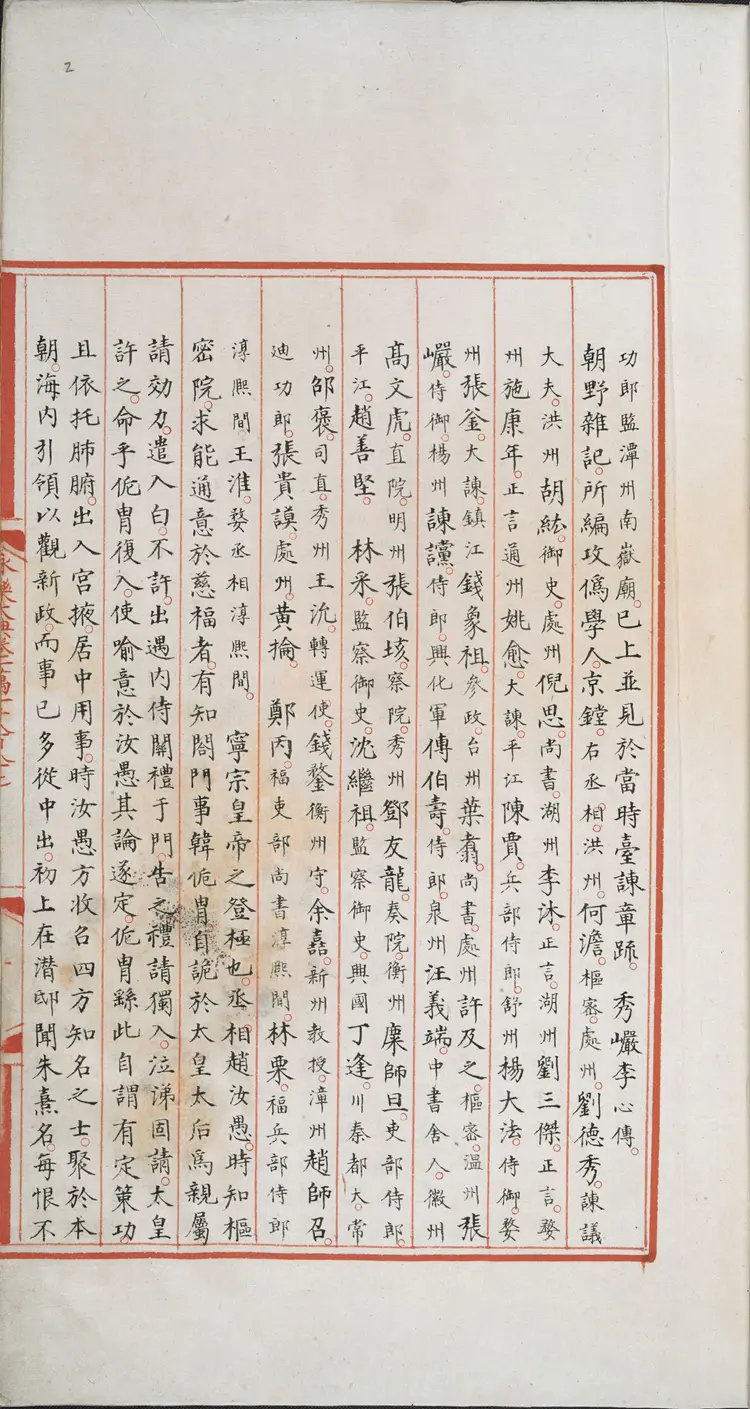 2
功郎監潭州南嶽廟。已上並見於當時臺諫章疏。 秀巖李心傳。
朝野雜記。所編攻偽學人。京鏜。右丞相。洪州。何澹。樞密。處州。劉德秀。諫議
大夫。洪州胡紘。御史。處州倪思。尚書。湖州李沐。正言。湖州劉三傑。正言。婺
州施康年。正言通州姚愈。大諫。平江陳賈。兵部侍郎。舒州楊大法。侍御。婺
州張釜。大諫。鎮江錢象祖。參政。台州葉翥。尚書。處州許及之。樞密。溫州張
巖。侍御。揚州諫讜。侍郎。興化軍傅伯壽。侍郎。泉州汪義端。中書舍人。徽州
高文虎。直院。明州張伯垓。察院。秀州鄧友龍。奏院。衡州糜師旦。吏部侍郎。
平江。趙善堅。 林采。監察御史。沈繼祖。監察御史。興國丁逢。川秦都大。常
州。邵褒。司直。秀州王沇。轉運使。錢鍪。衡州守。余嚞。新州教授。漳州趙師召。
迪功郎。張貴謨。處州。黃掄。 鄭丙。福吏部尚書淳熙間。林栗。福兵部侍郎
淳熙間。王淮。婺丞相淳熙間。 寧宗皇帝之登極也。丞相趙汝愚。時知樞
密院。求能通意於慈福者。有知閤門事韓侂胄。自詭於太皇太后為親屬
請効力。遣入白。不許。出遇內侍關禮于門。告之。禮請獨入。泣涕固請。太皇
許之。命乎侂胄復入。使喻意於汝愚其論遂定。侂胄繇此自謂有定策功
且依托肺腑。出入宮掖。居中用事。時汝愚方收召四方知名之士。聚於本
朝。海內引領以觀新政。而事已多從中出。初上在潛邸聞朱熹名。每恨不